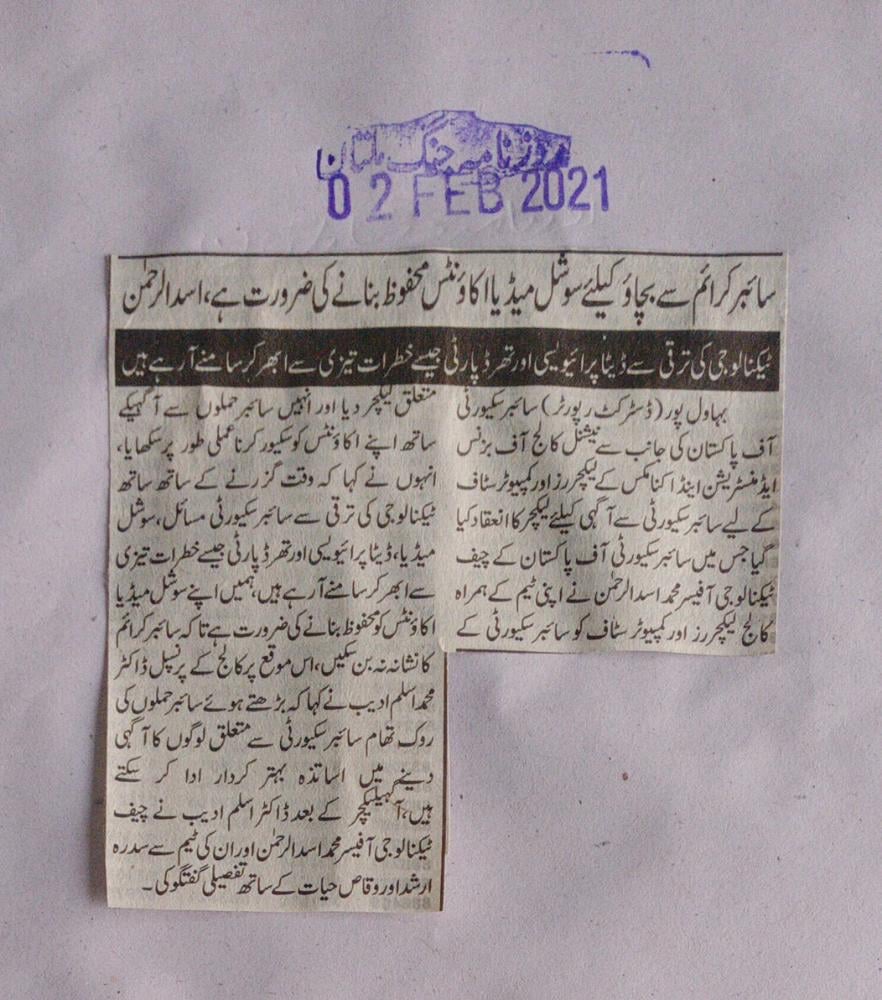 روزنامہ جنگ ملتان
02 FEB 2021
سائبر کرائم سے بچاؤ کیلئے سوشل میڈیا اکاؤنٹس محفوظ بنانے کی ضرورت ہے، اسد الرحمٰن
ٹیکنالوجی کی ترقی سے ڈیٹا پرائیویسی اور تھرڈ پارٹی جیسے خطرات تیزی سے ابھر کر سامنے آ رہے ہیں
بہاول پور (ڈسٹرکٹ رپورٹر) سائبر سکیورٹی
آف پاکستان کی جانب سے نیشنل کالج آف بزنس
ایڈمنسٹریشن اینڈ اکنامکس کے لیکچررز اور کمپیوٹر سٹاف
کے لیے سائبر سکیورٹی سے آگہی کیلئے لیکچر کا انعقاد کیا
گیا جس میں سائبر سکیورٹی آف پاکستان کے چیف
ٹیکنالوجی آفیسر محمد اسد الرحمٰن نے اپنی ٹیم کے ہمراہ
کالج لیکچررز اور کمپیوٹر سٹاف کو سائبر سکیورٹی کے
متعلق لیکچر دیا اور انہیں سائبر حملوں سے آگہیکے
ساتھ اپنے اکاؤنٹس کو سکیور کرنا عملی طور پر سکھایا،
انہوں نے کہا کہ وقت گزرنے کے ساتھ ساتھ
ٹیکنالوجی کی ترقی سے سائبر سکیورٹی مسائل، سوشل
میڈیا، ڈیٹا پرائیویسی اور تھرڈ پارٹی جیسے خطرات تیزی
سے ابھر کر سامنے آ رہے ہیں، ہمیں اپنے سوشل میڈیا
اکاؤنٹس کو محفوظ بنانے کی ضرورت ہے تا کہ سائبر کرائم
کا نشانہ نہ بن سکیں، اس موقع پر کالج کے پرنسپل ڈاکٹر
محمد اسلم ادیب نے کہا کہ بڑھتے ہوئے سائبر حملوں کی
روک تھام سائبر سکیورٹی سے متعلق لوگوں کا آگہی
دینے میں اساتذہ بہتر کردار ادا کر سکتے
ہیں، آگہیلیکچر کے بعد ڈاکٹر اسلم ادیب نے چیف
ٹیکنالوجی آفیسر محمد اسد الرحمٰن اور ان کی ٹیم سے سدرہ
ارشد اور وقاص حیات کے ساتھ تفصیلی گفتگو کی۔